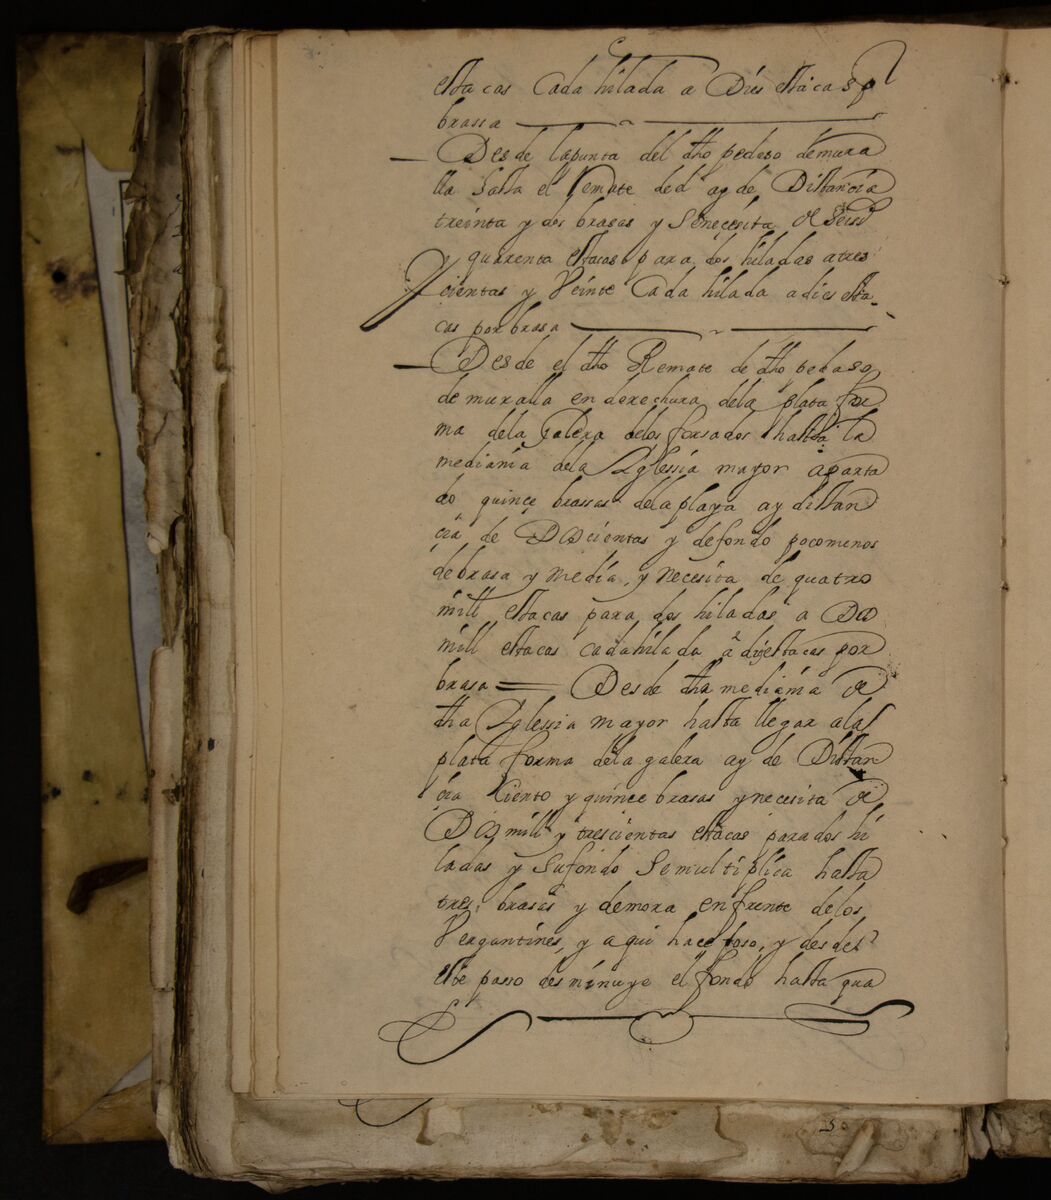 estacas cada hilada a dies estacas p
brassa
Desde lapunta del dho pedaso demura
lla hasta el Remate del ay de Distancia
treinta y dos brasas y Senecesita de Seis
y quarenta estacas para dos hiladas atres
cientas y Veinte cada hilada adies esta
cas por brasa
Desde el dho Remate de dho pedaso
de muralla en derechura dela plata for
ma dela Galera delos forsados hasta la
mediania dela Yglessia mayor aparta
do quince brassas dela playa ay distan
cia de Doscientas y defondo pocomenos
de brasa y media, y necesita de quatro
mill estacas para dos hiladas a Dos
mill estacas cadahilada a diestacas por
brasa Desde dha mediania de
dha Yglessia mayor hasta llegar alas
plata forma dela galera ay de Distan
cia Ciento y quince brasas ynecesita de
Dos mill y trescientas estacas parados hi
ladas y Sufondo Semultiplica hasta
tres, brasas y demora enfrente delos
Vergantines, y aqui hace foso, y desdes
este passo desminuye el fondo hasta qua
5